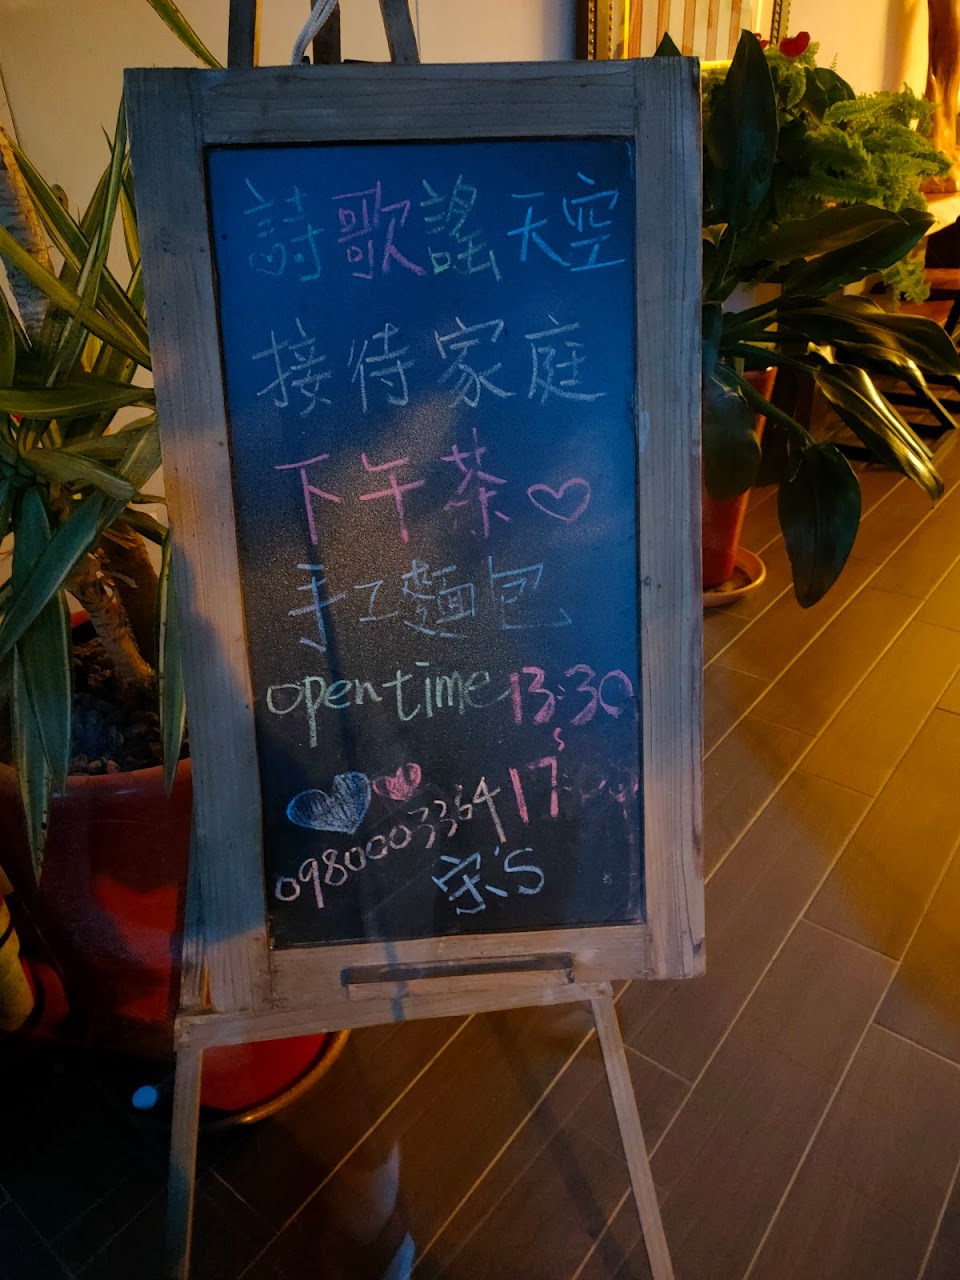 詩歌謠天空
接待家庭
下午茶♡
手工麵包
open time 13:30
~
17:
0980003364
宋'S